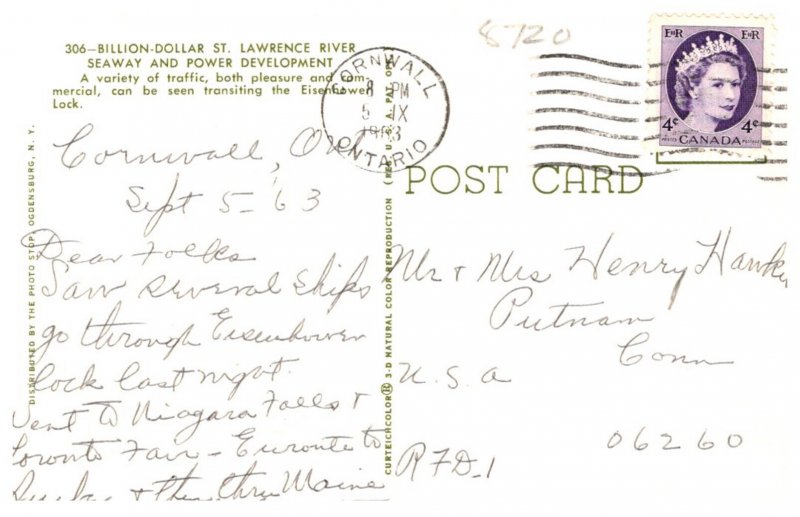 306—BILLION-DOLLAR ST. LAWRENCE RIVER
SEAWAY AND POWER DEVELOPMENT
A variety of traffic, both pleasure and com-
mercial, can be seen transiting the Eisenhower
Lock.
Cornwall, Ont
Sept 5-63
Dear Folks
Saw several ships
go through Eisenhower
lock last night.
Went to Niagara Falls &
Toronto Fair - Enroute to
& then thru Maine
DISTRIBUTED BY THE PHOTO STOP, OGDENSBURG, N. Y.
CURTEICHCOLOR® 3-D NATURAL COLOR REPRODUCTION (REG. U.S.A. PAT. OFF.
8720
CORNWALL
8 PM
5 IX
1963
ONTARIO
EIIR EIIR
4¢ 4¢
POSTES POSTAGE
CANADA
POST CARD
Mr & Mrs Henry
Putnam
Conn
U.S.A
06260
RFD-1